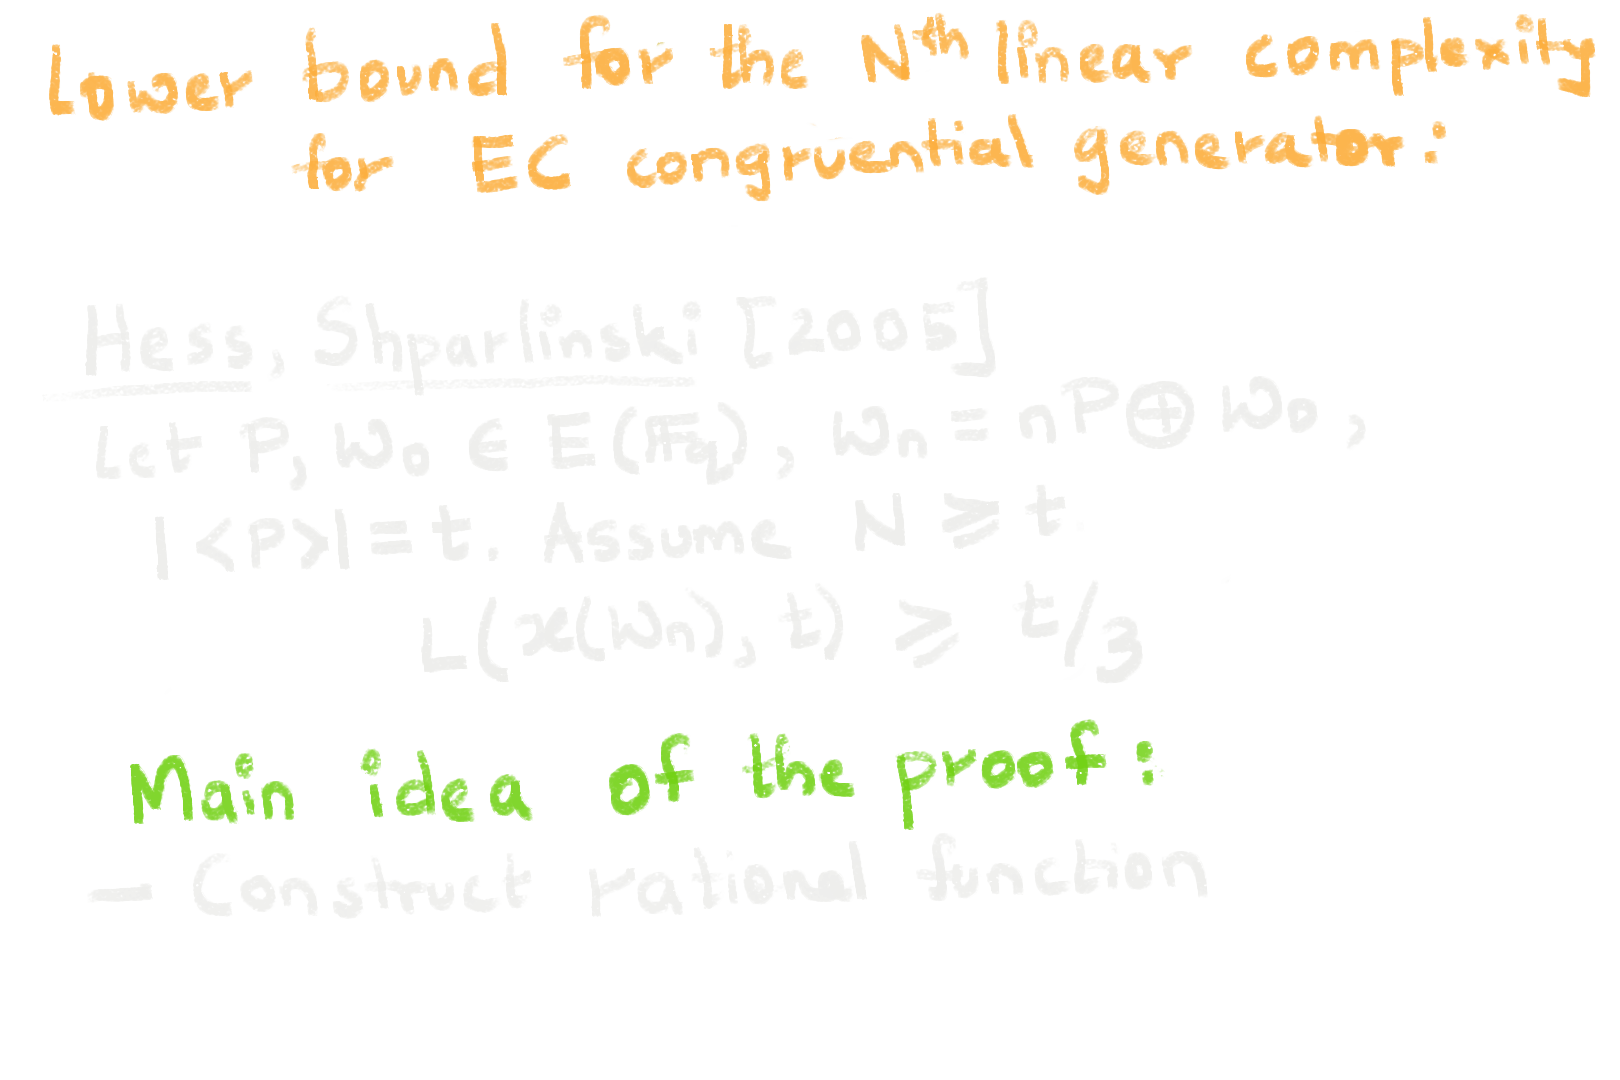 Lower bound for the Nth linear complexity
for EC congruential generator:
Hess, Shparlinski [2005]
Let P, W₀ ∈ E(𝔽q), Wₙ = nP ⊕ W₀,
|<P>| = t. Assume N ≥ t
L(x(Wₙ), t) ≥ t/3
Main idea of the proof:
— Construct rational function